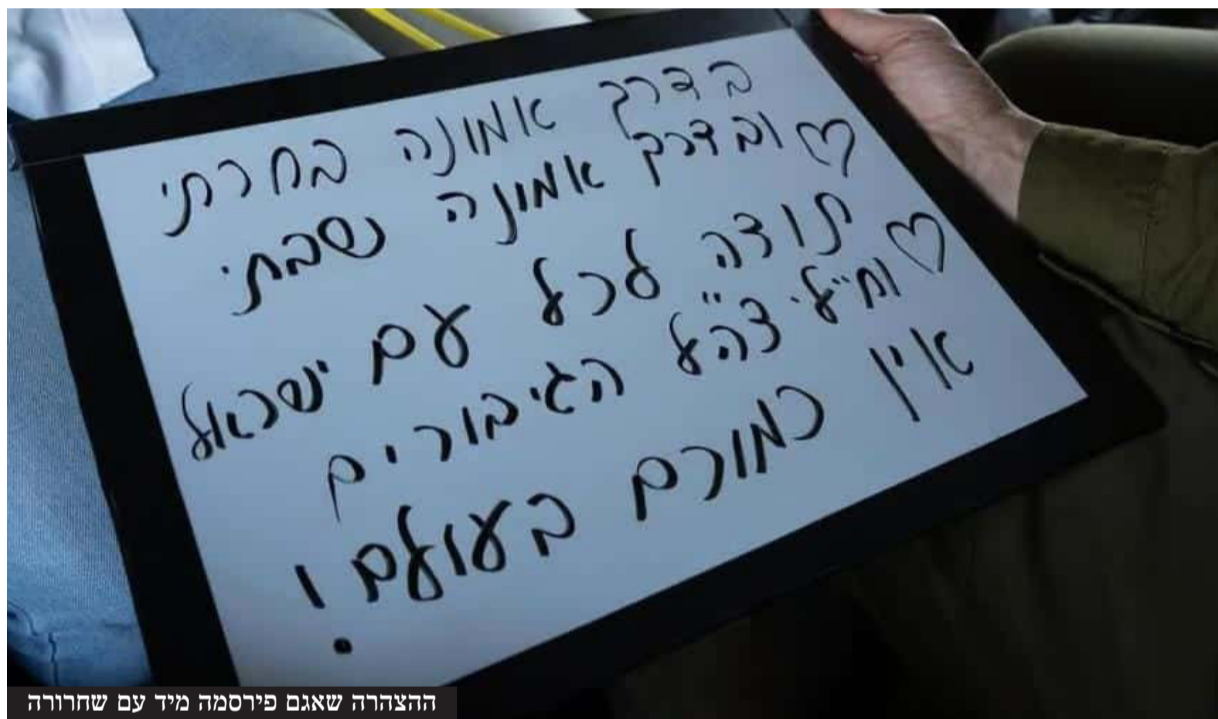 בדרך אמונה בחרתי
ובדרך אמונה שבתי ♡
תודה לכל עם ישראל
וח״לי צה״ל הגיבורים ♡
אין כמוכם בעולם!
ההצהרה שאגם פירסמה מיד עם שחרורה